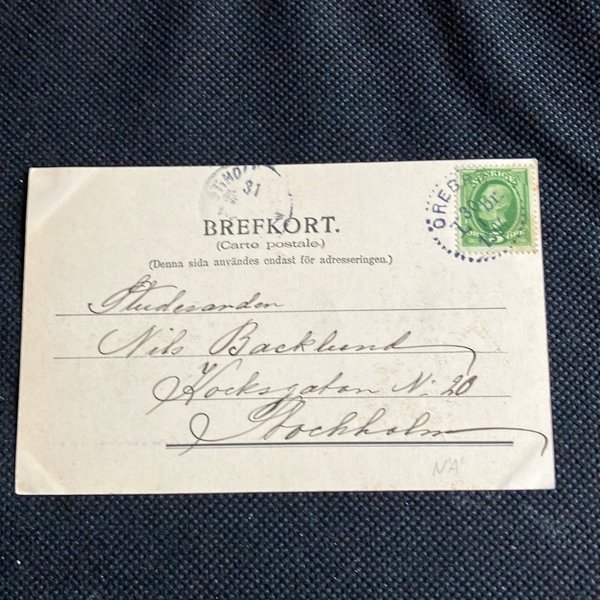 BREFKORT.
(Carte postale.)
(Denna sida användes endast för adresseringen.)
SVERIGE
ÖREB
31
Studeranden
Nils Backlund
Kocksgatan No 20
Stockholm